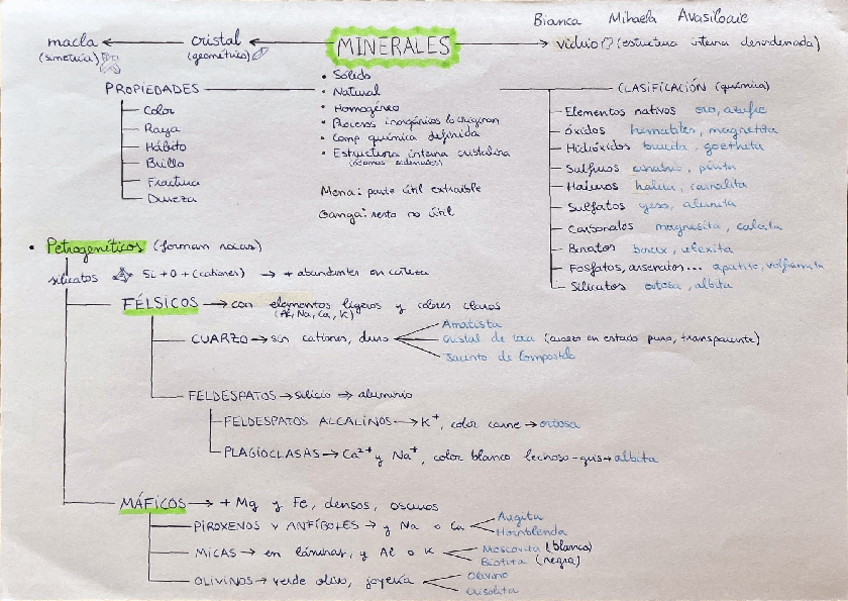 Bianca Mihaela Avasiloaie
macla ← cristal ← MINERALES → vidrio (estructura interna desordenada)
(simetría) (geométrico)
PROPIEDADES
Color
Raya
Hábito
Brillo
Fractura
Dureza
• Sólido
• Natural
• Homogéneo
• Procesos inorgánicos lo originan
• Comp química definida
• Estructura interna cristalina
(átomos ordenados)
Mena: parte útil extraíble
Ganga: resto no útil
CLASIFICACIÓN (química)
Elementos nativos oro, azufre
óxidos hematites, magnetita
Hidróxidos brucita, goethita
Sulfuros cinabrio, pirita
Haluros halita, carnalita
Sulfatos yeso, alunita
Carbonatos magnesita, calcita
Boratos borax, ulexita
Fosfatos, arseniatos... apatito, volframita
Silicatos ortosa, albita
• Petrogenéticos (forman rocas)
silicatos Si + O + (cationes) → + abundantes en corteza
FÉLSICOS → con elementos ligeros y colores claros
(Al, Na, Ca, K)
CUARZO → sin cationes, duro
Amatista
Cristal de roca (cuarzo en estado puro, transparente)
Jacinto de Compostela
FELDESPATOS → silicio ⇒ aluminio
FELDESPATOS ALCALINOS → K⁺, color carne → ortosa
PLAGIOCLASAS → Ca²⁺ y Na⁺, color blanco lechoso-gris → albita
MÁFICOS → + Mg y Fe, densos, oscuros
PIROXENOS Y ANFÍBOLES → y Na o Ca
Augita
Hornblenda
MICAS → en láminas, y Al o K
Moscovita (blanca)
Biotita (negra)
OLIVINOS → verde olivo, joyería
Olivino
Crisolita